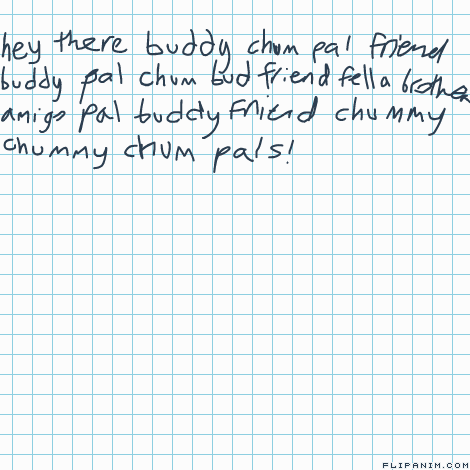 hey there buddy chum pal friend
buddy pal chum bud friend fella brother
amigo pal buddy friend chummy
chummy chum pals!
FLIPANIM.COM